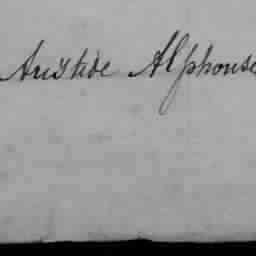 Aristide Alphonse